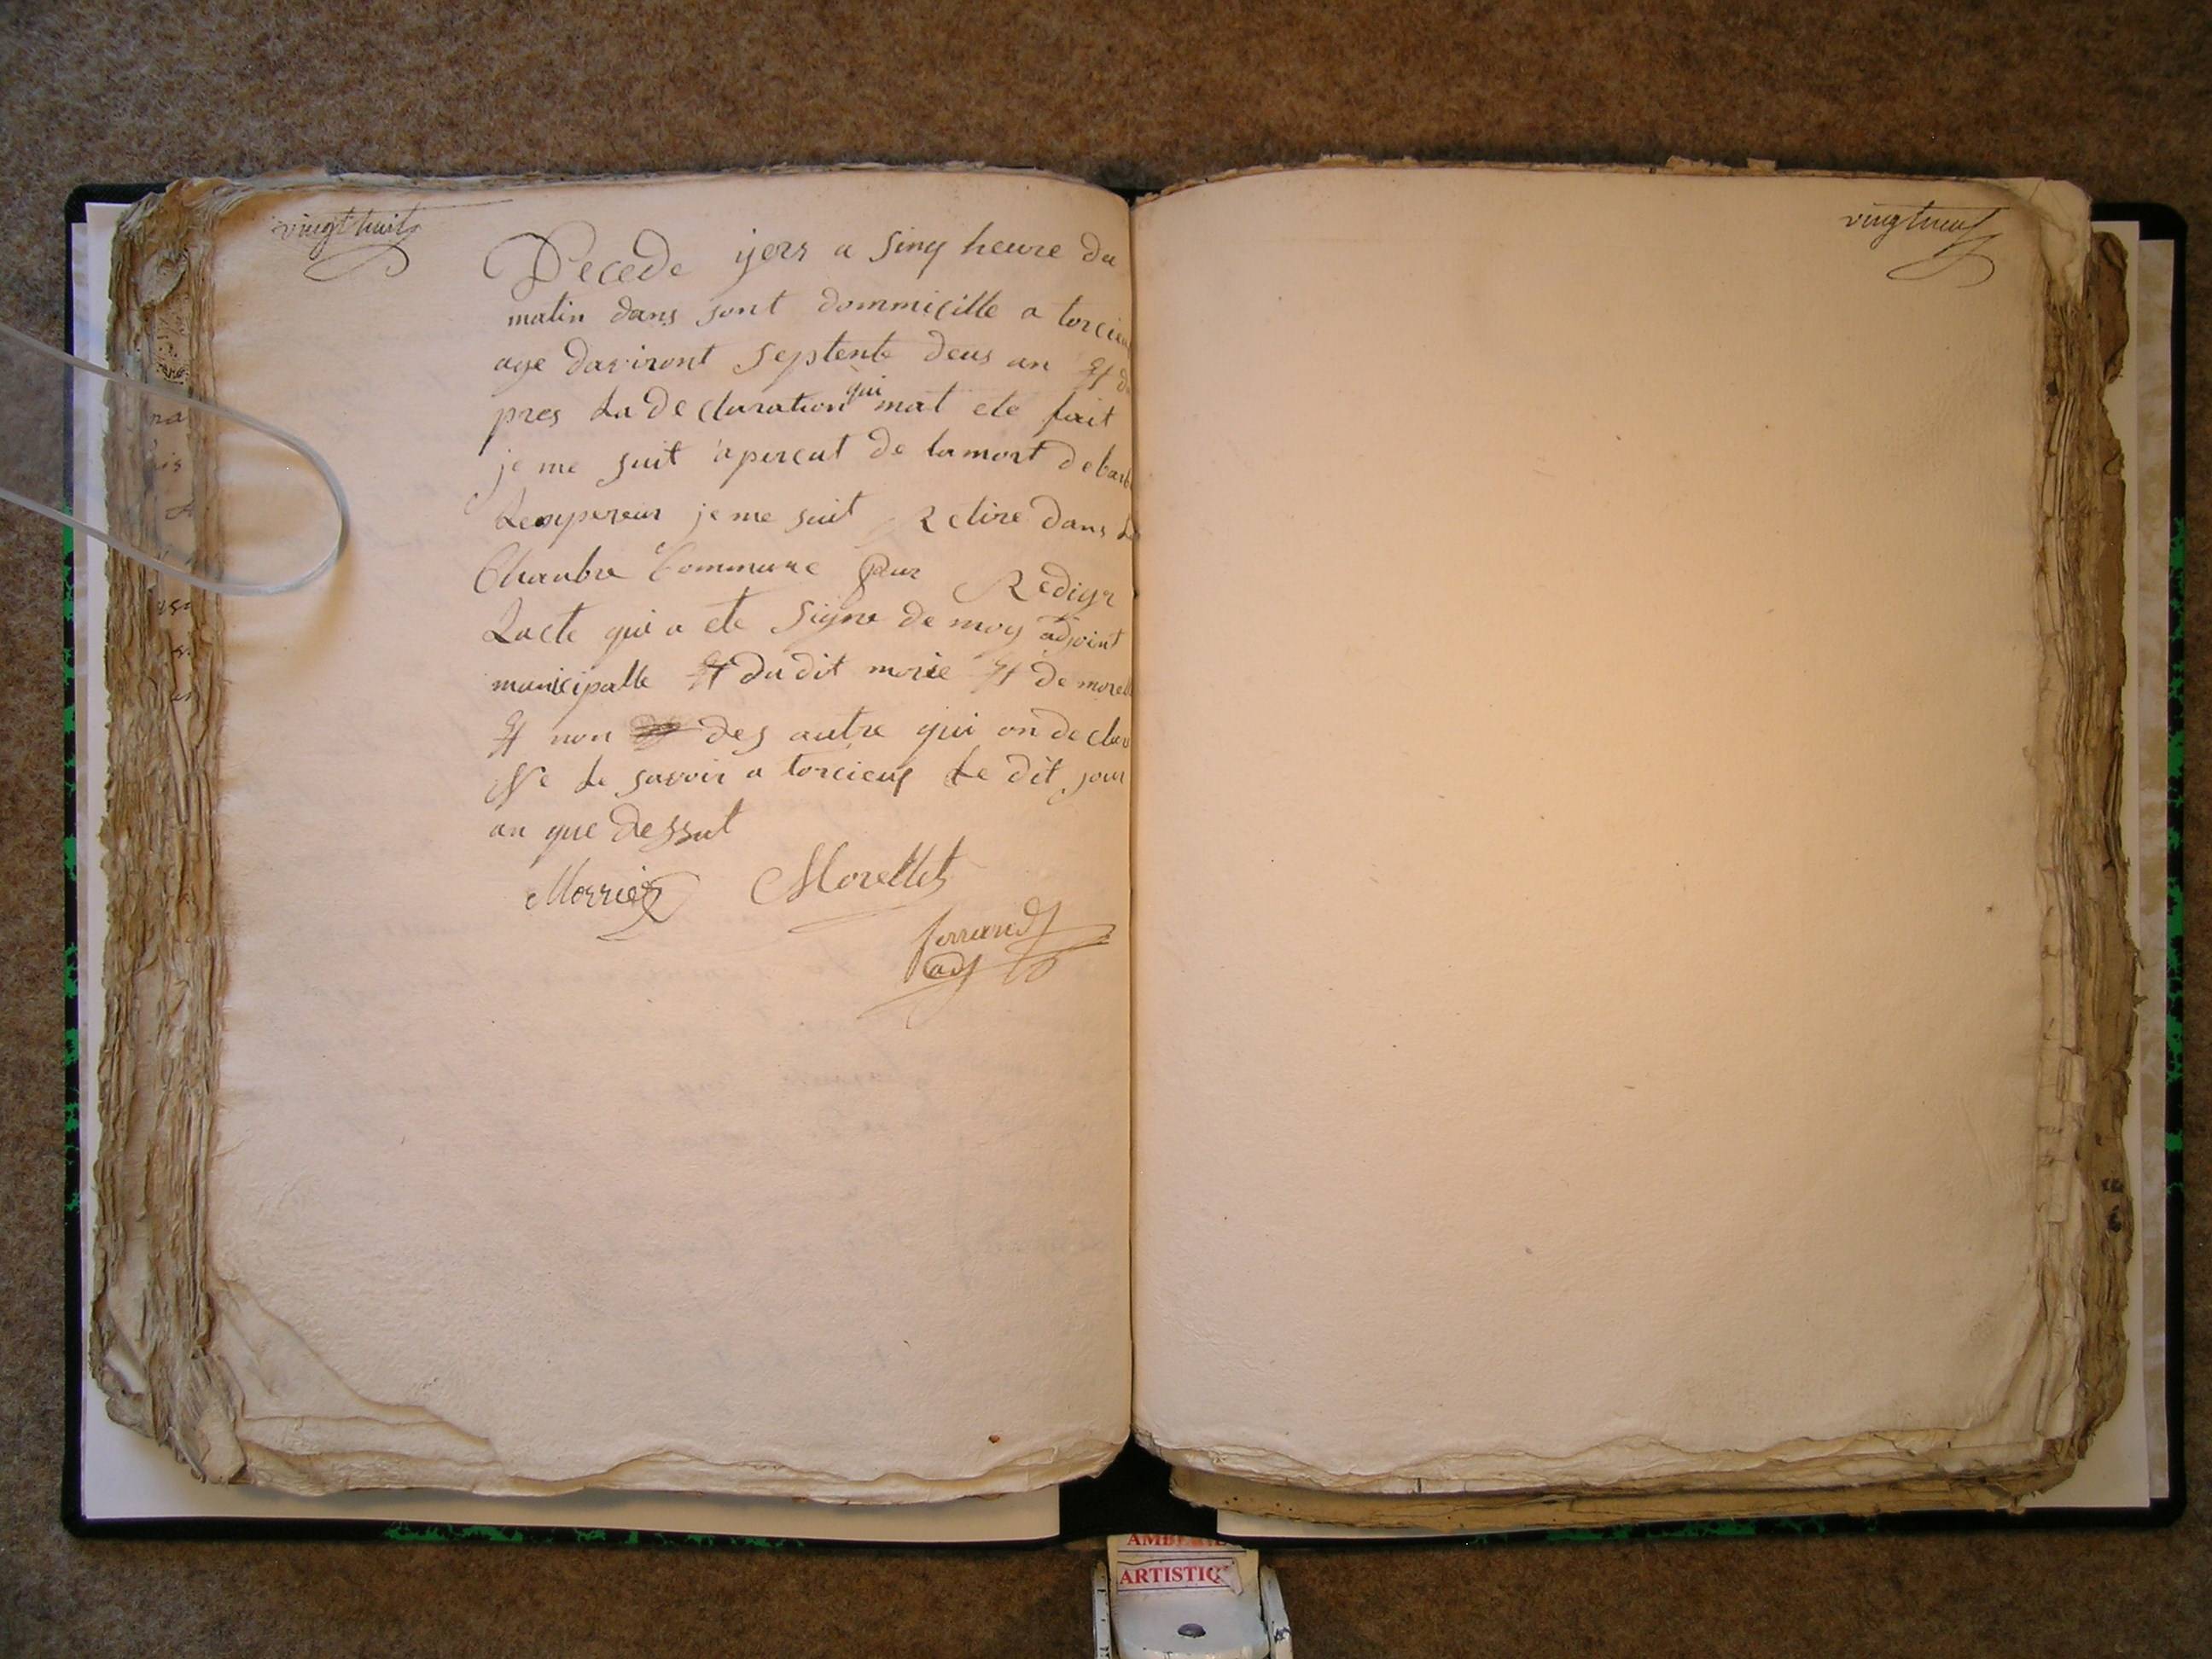 vingt huit
Decede yers a sinq heure du
matin dans sont dommicille a torcieu
age daviront septente deus an Et d
pres La declaration qui mat ete fait
je me suit apercut de la mort de
Lempereur je me suit Retire dans
Chanbre Commune pour Redigr
Lacte qui a ete signe de moy adjoint
municipalle Et du dit morie Et de morell
Et non des autre qui on declar
Ne Le savoir a torcieux Le dit jour
an que dessut
Morrier Morellet
ferrand
adj
vingt neuf
AMBERIE
ARTISTIQ